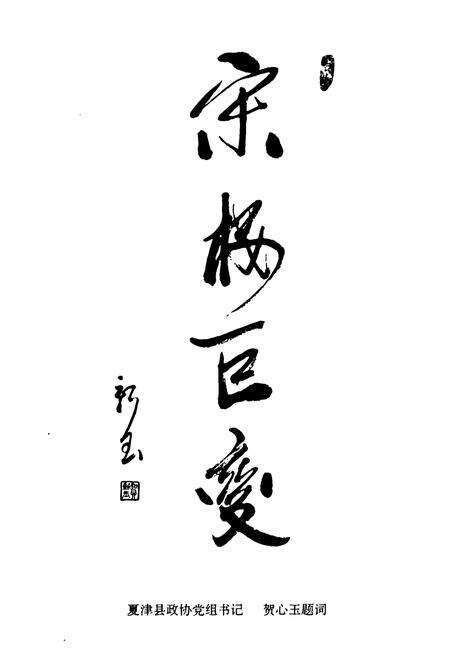 宋楼巨变
新玉
夏津县政协党组书记 贺心玉题词